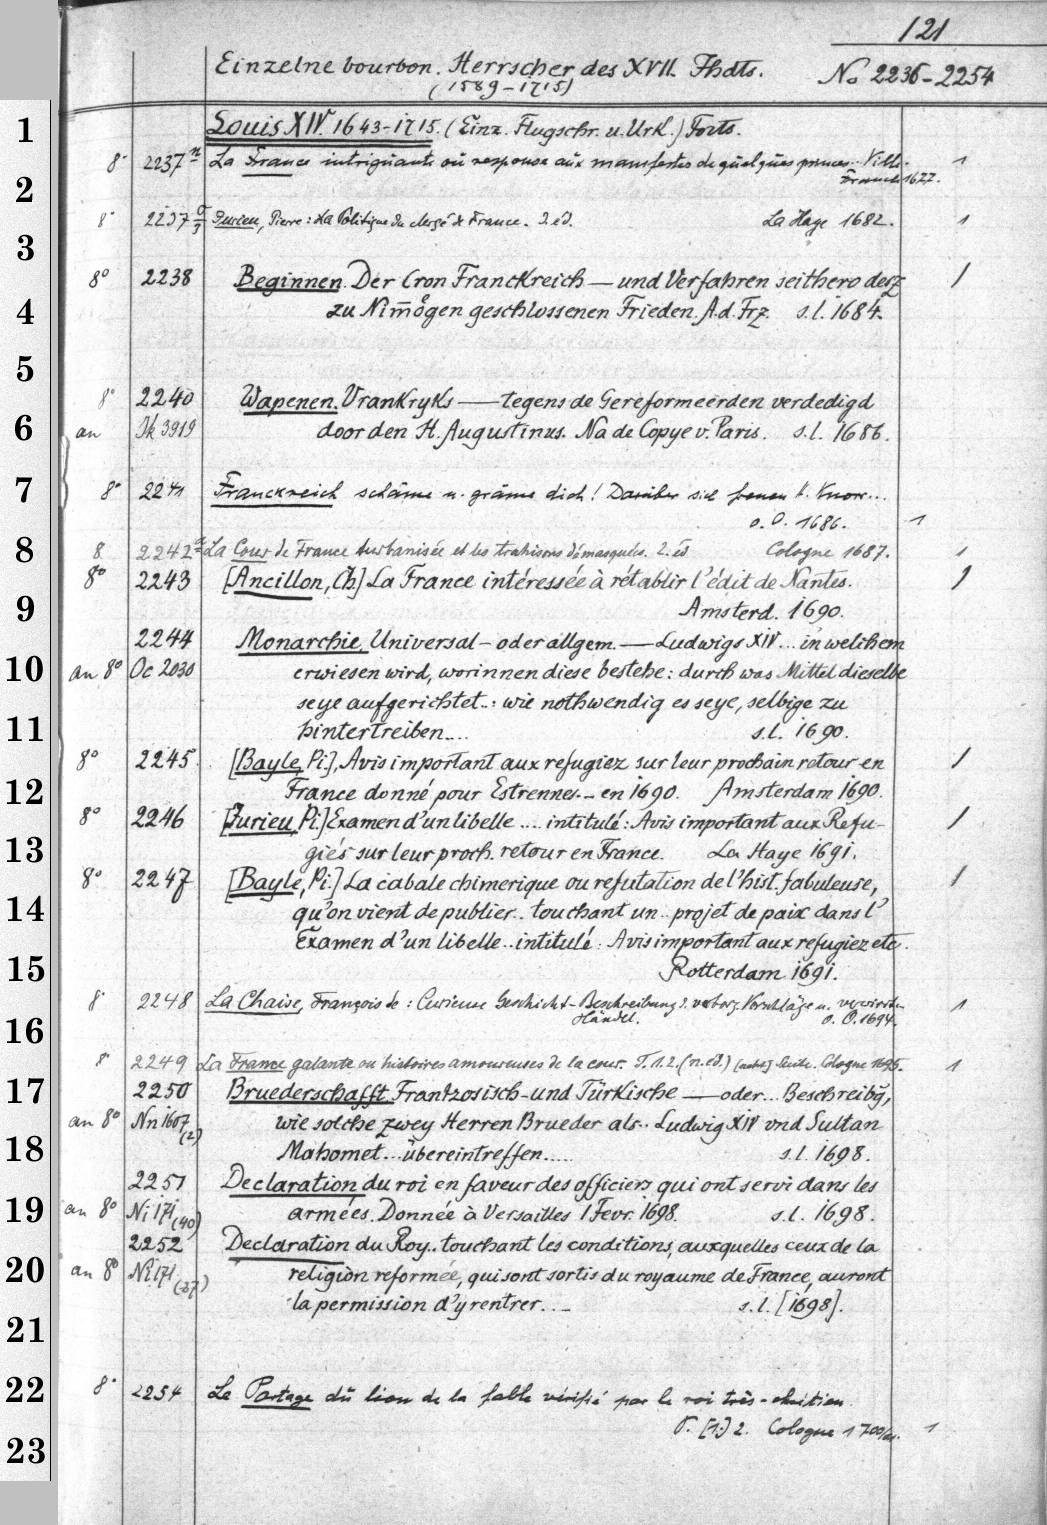 121
Einzelne bourbon. Herrscher des XVII. Jhdts. No 2236-2254
(1589-1715)
1 Louis XIV. 1643-1715. (Einz. Flugschr. u. Urk.) Forts.
8° 2237 La France intriguante ou response aux manifestes de quelques princes.. Ville- 1
2 Franche 1677.
8° 2237 Jurieu, Pierre: La Politique du clergé de France. 2. éd. La Haye 1682. 1
3
8° 2238 Beginnen. Der Cron Franckreich — und Verfahren seithero desz 1
4 zu Nim̄ögen geschlossenen Frieden. A. d. Frz. s.l. 1684.
5
8° 2240 Wapenen. Vrankryks — tegens de Gereformeerden verdedigd
6 an Ik 3919 door den H. Augustinus. Na de Copye v. Paris. s.l. 1686.
7 8° 2241 Franckreich schäme u. gräme dich! Darüber sich freuen
o. O. 1686. 1
8 8 2242 La Cour de France turbanisée et les trahisons démasquées. 2. éd Cologne 1687. 1
8° 2243 [Ancillon, Ch] La France intéressée à rétablir l'édit de Nantes. 1
9 Amsterd. 1690.
2244 Monarchie, Universal- oder allgem. — Ludwigs XIV... in welchem
10 an 8° Oc 2030 erwiesen wird, worinnen diese bestehe: durch was Mittel dieselbe
seye aufgerichtet..: wie nothwendig es seye, selbige zu
11 hintertreiben.... s.l. 1690.
8° 2245. [Bayle, Pi.], Avis important aux refugiez sur leur prochain retour en 1
12 France donné pour Estrennes... en 1690. Amsterdam 1690.
8° 2246 [Jurieu, Pi.] Examen d'un libelle .... intitulé: Avis important aux Refu- 1
13 giés sur leur proch. retour en France. La Haye 1691.
8° 2247 [Bayle, Pi.] La cabale chimerique ou refutation de l'hist. fabuleuse, 1
14 qu'on vient de publier.. touchant un.. projet de paix dans l'
Examen d'un libelle.. intitulé: Avis important aux refugiez etc.
15 Rotterdam 1691.
8° 2248 La Chaise, François de: Curieuse Geschicht-Beschreibung s. verborg. Vorschläge u. verwirrten 1
16 Händel. o. O. 1694.
8° 2249 La France galante ou histoires amoureuses de la cour. T. 1. 2. (n. éd.) Suite. Cologne 1695. 1
17 2250 Bruederschafft. Frantzosisch- und Türkische — oder... Beschreibg̃,
an 8° Nn 1607 (2) wie solche zwey Herren Brueder als.. Ludwig XIV vnd Sultan
18 Mahomet... übereintreffen..... s.l. 1698.
2251 Declaration du roi en faveur des officiers qui ont servi dans les
19 an 8° Ni 171 (40) armées. Donnée à Versailles 1 Fevr. 1698. s.l. 1698.
2252 Declaration du Roy.. touchant les conditions, auxquelles ceux de la
20 an 8° Ni 171 (37) religion reformée, qui sont sortis du royaume de France, auront
la permission d'y rentrer... s.l. [1698].
21
22 8° 2254 Le Partage du lion de la fable vérifié par le roi très-chrétien.
T. [1.] 2. Cologne 1700/01. 1
23